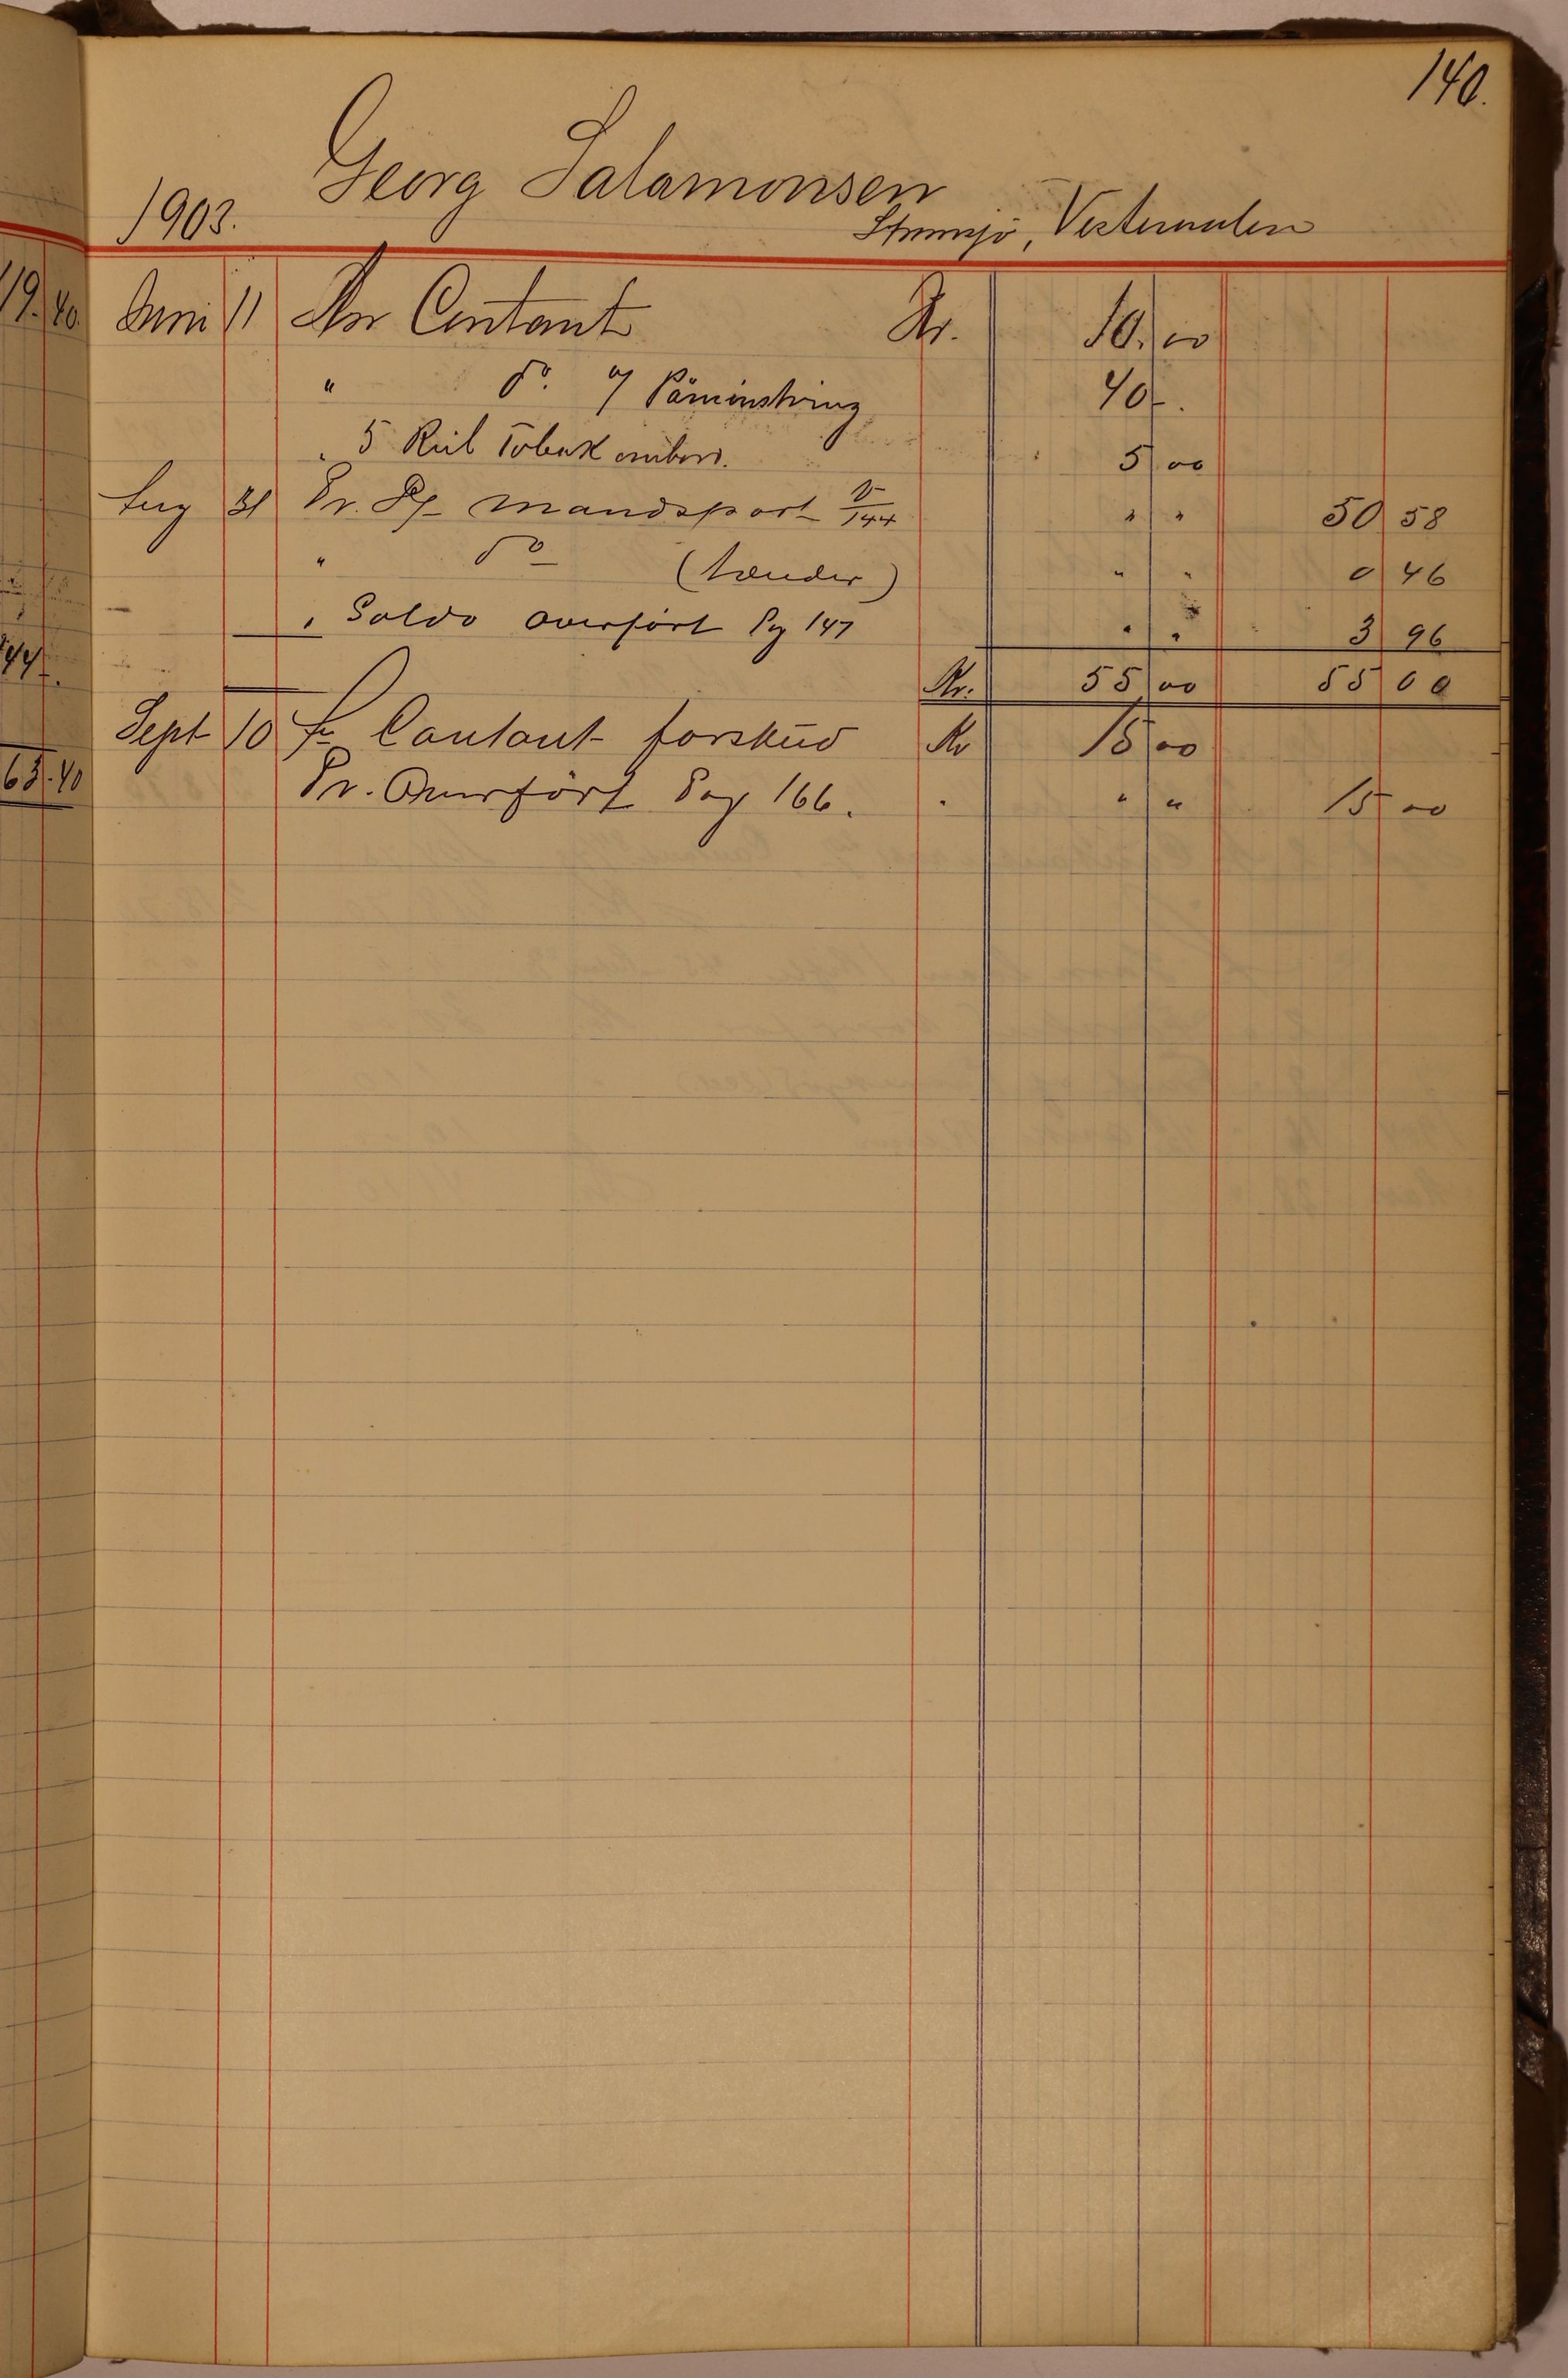 140.
Georg Salamonsen
1903. Strmsjö, Vesteraalen
Juni 11 An Contant Kr. 10.00
" do. v/ Påmönstring 40 -.
" 5 Rul Tobak ombord. 5 00
Aug 31 Pr. Pg mandspart V/144 " " 50 58
" do (Lænder) " " 0 46
" Saldo overført Pg 147 " " 3 96
Kr. 55 00 55 00
Sept 10 Contant forskud Kr 15 00
Pr. Overført Pag 166. " " " 15 00
19. 40.
44 -.
63. 40